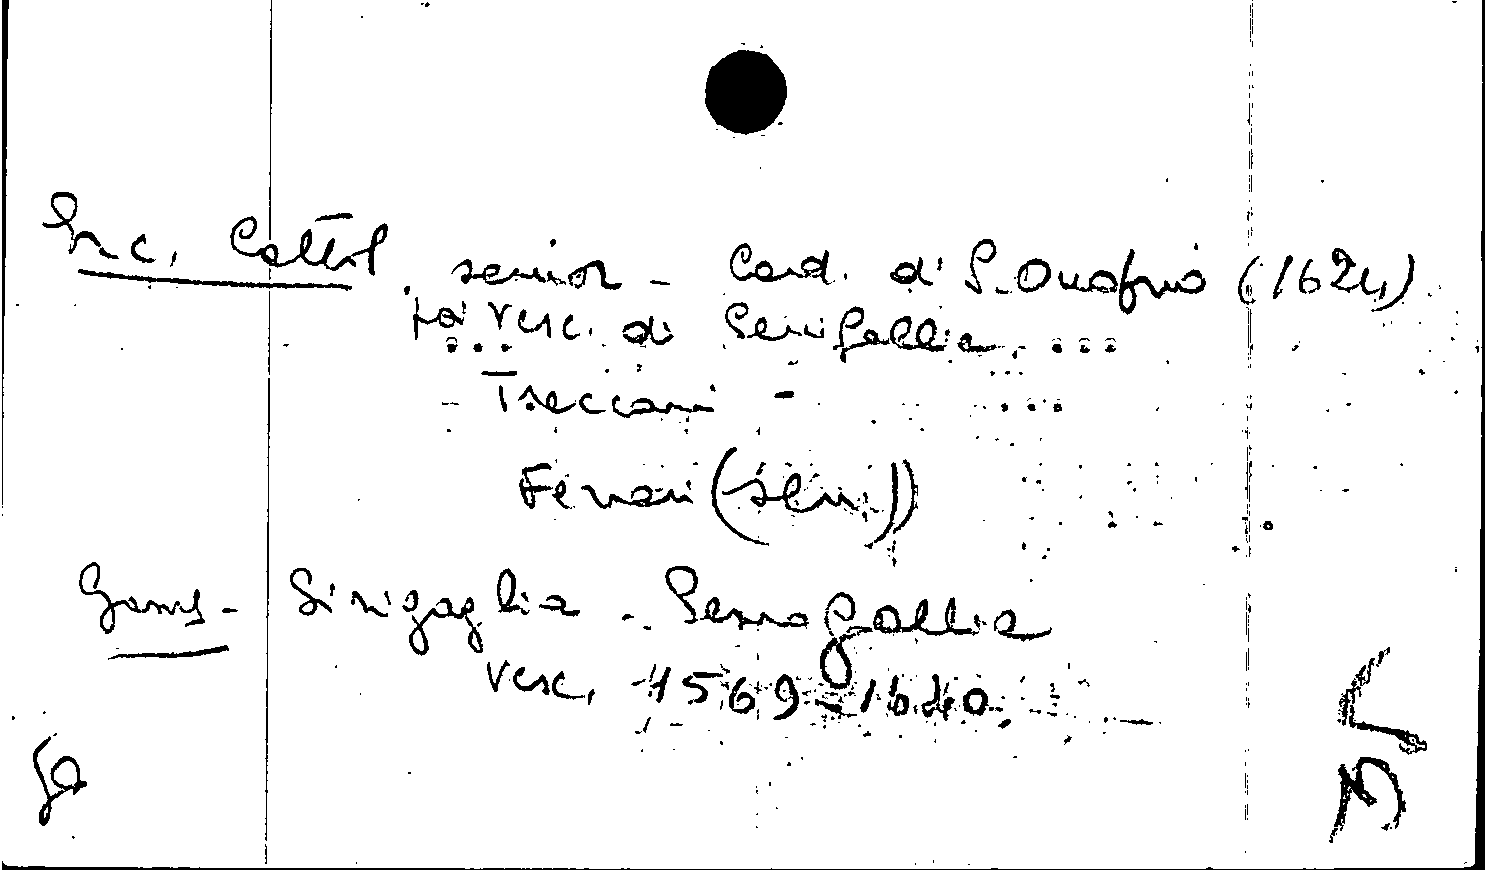 Enc. Cattol. senior - Card. di S. Onofrio (1624)
poi Vesc. di Senigallia. ...
- Treccani - ...
Ferrari (sen.)
Gams - Sinigaglia - Senogallia
Vesc. 1569-1640.